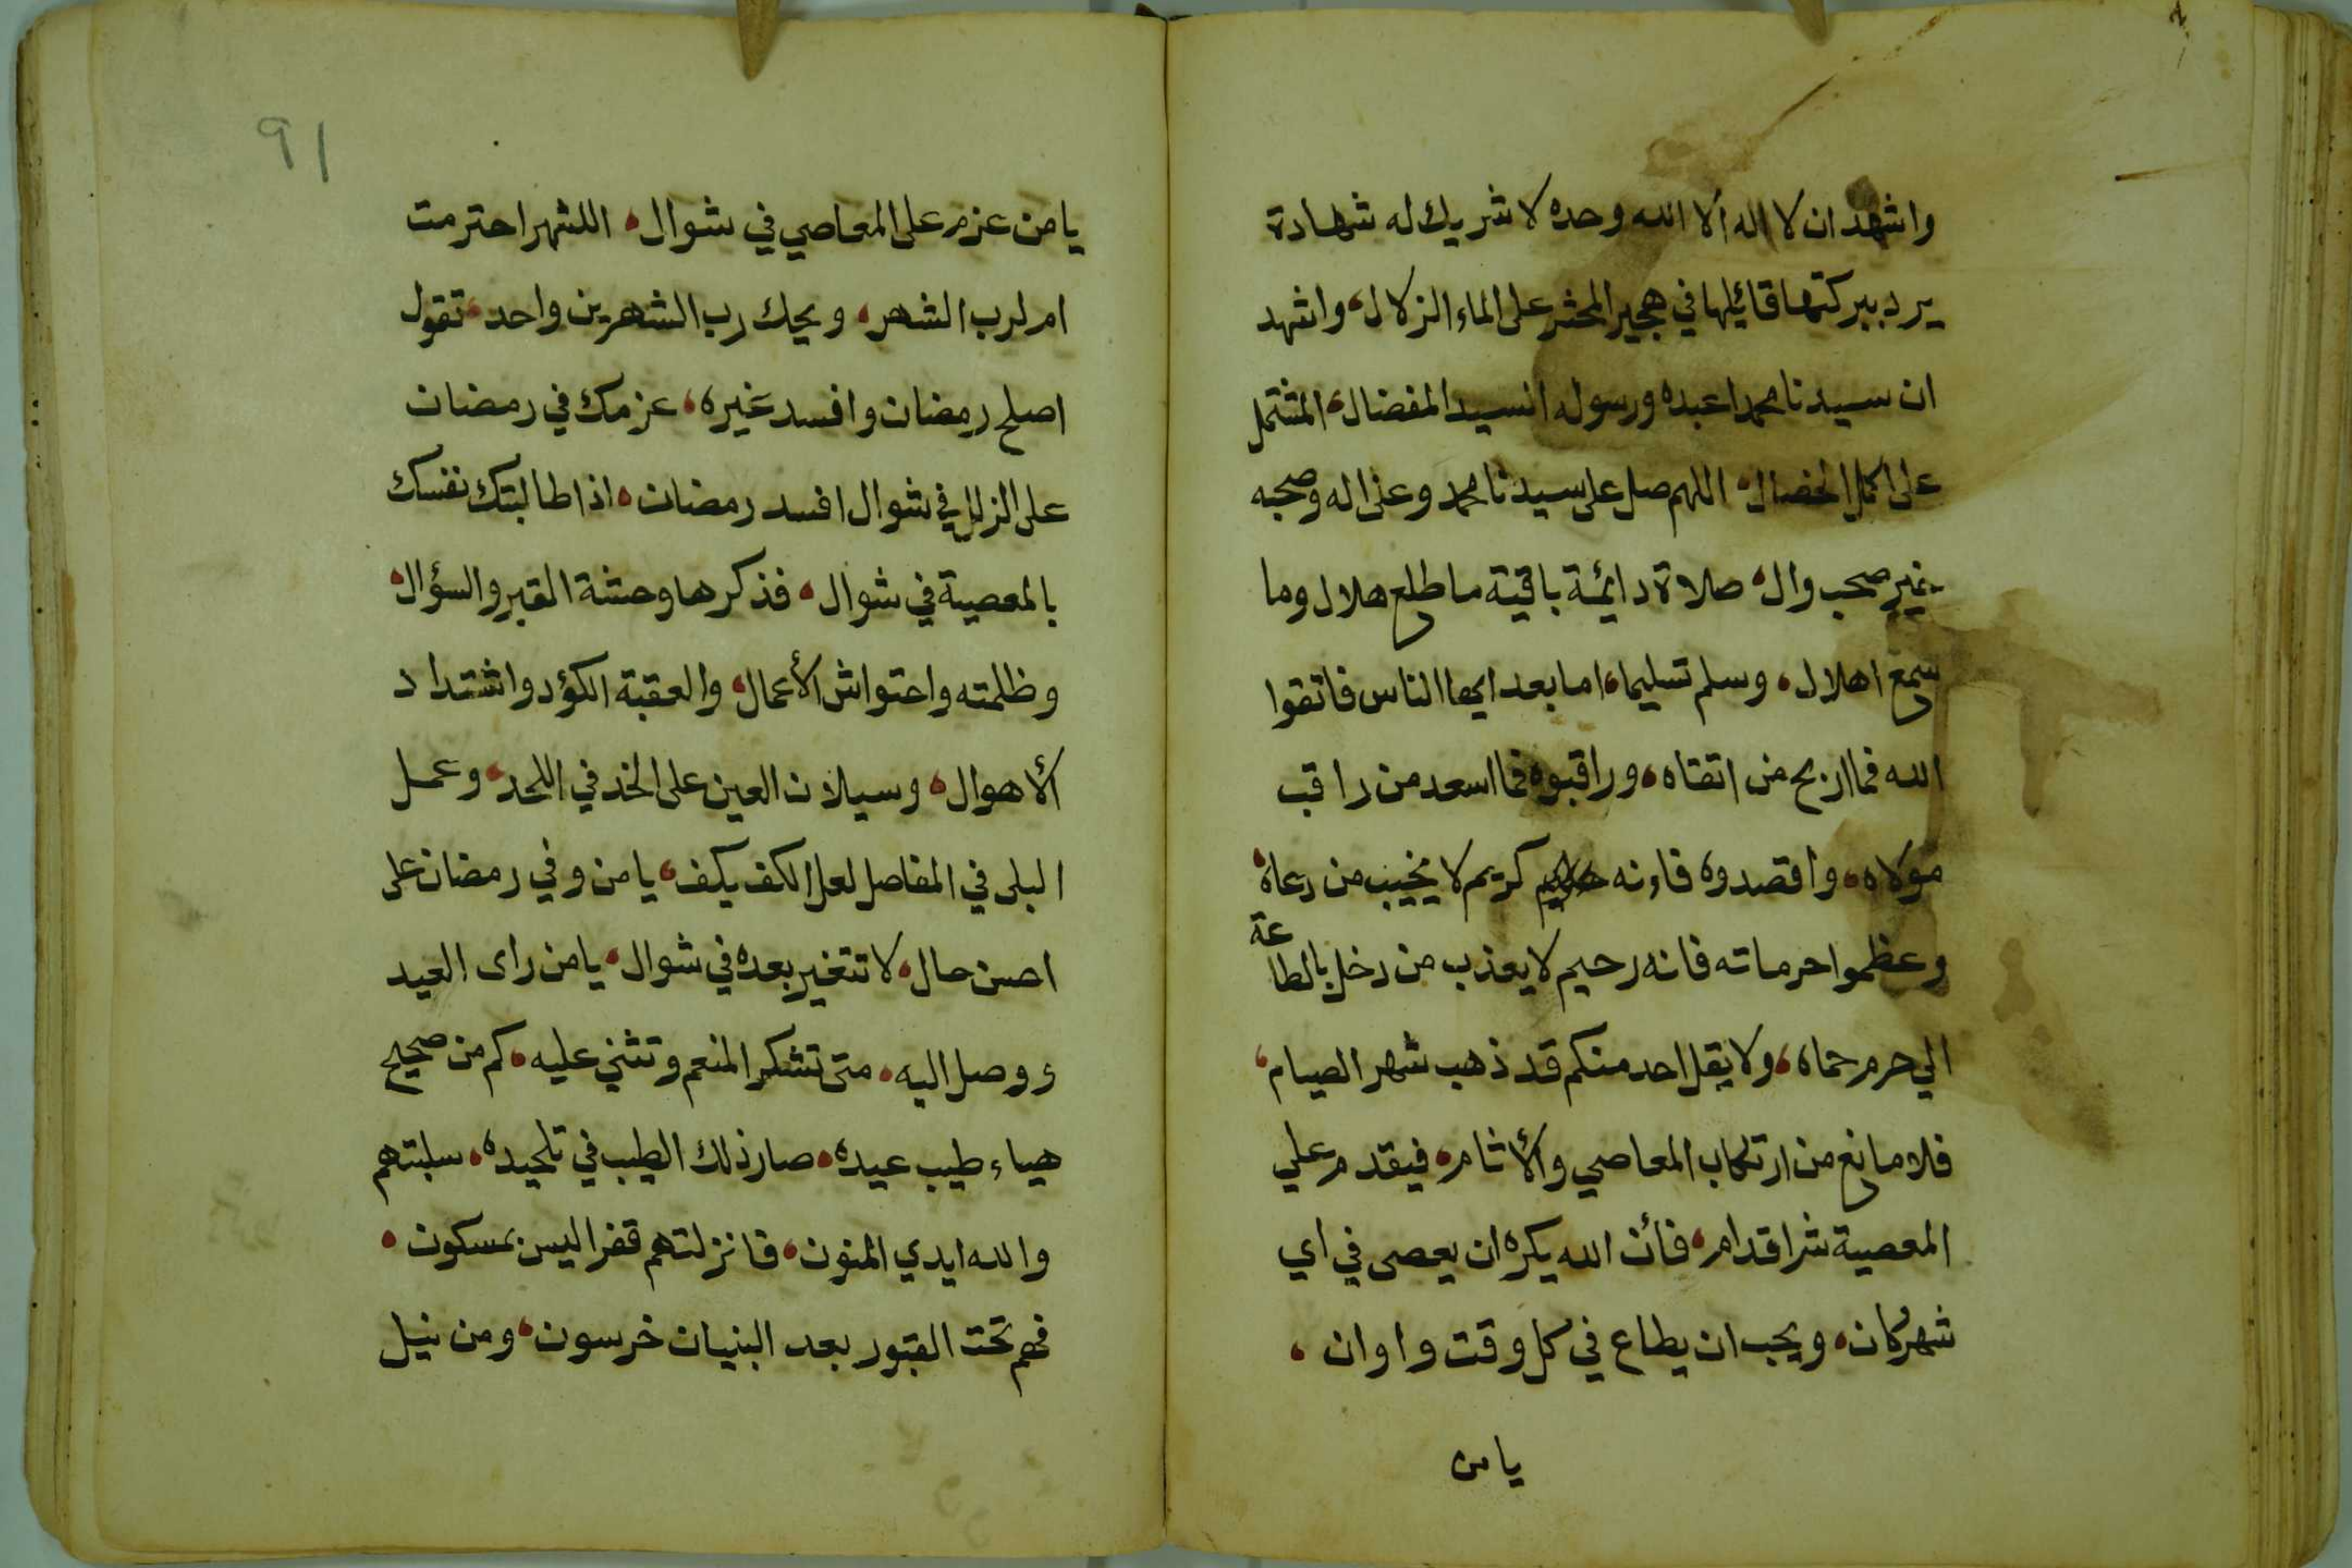 واشهد ان لا اله الا الله وحده لا شريك له شهادة
يرد ببركتها قائيلها في هجير المحشر على الماء الزلال، واشهد
ان سيدنا محمدا عبده ورسوله السيد المفضال، المشتمل
على اكمل الخصال، اللهم صل على سيدنا محمد وعلى اله وصحبه
خير صحب وال، صلاة دائمة باقية ما طلع هلال وما
سمع اهلال، وسلم تسليما، اما بعد ايها الناس فاتقوا
الله فما اربح من اتقاه، وراقبوه فما اسعد من راقب
مولاه، واقصدوه فاءنه كريم لا يخيب من دعاه،
وعظموا حرماته فانه رحيم لا يعذب من دخل بالطاعة
الي حرم حماه، ولا يقل احد منكم قد ذهب شهر الصيام،
فلا مانع من ارتكاب المعاصي والأثام، فيقدم علي
المعصية شر اقدام، فأن الله يكره ان يعصى في اي
شهر كان، ويجب ان يطاع في كل وقت واوان،
يا من
91
يا من عزم على المعاصي في شوال، اللشهر احترمت
ام لرب الشهر، ويحك رب الشهرين واحد، تقول
اصلح رمضان وافسد غيره، عزمك في رمضان
على الزلل في شوال افسد رمضان، اذا طالبتك نفسك
بالمعصية في شوال، فذكرها وحشة القبر والسؤال،
وظلمته واحتواش الأعمال، والعقبة الكؤد واشتداد
الأهوال، وسيلان العين على الخد في اللحد، وعمل
البلى في المفاصل لعل الكف يكف، يا من وفي رمضان على
احسن حال، لا تتغير بعده في شوال، يا من راى العيد
ووصل اليه، متى تشكر المنعم وتثني عليه، كم من صحيح
هياء طيب عيده، صار ذلك الطيب في تلحيده، سلبتهم
والله ايدي المنون، فانزلتهم قفرا ليس بمسكون،
فهم تحت القبور بعد البنيان خرسون، ومن نيل